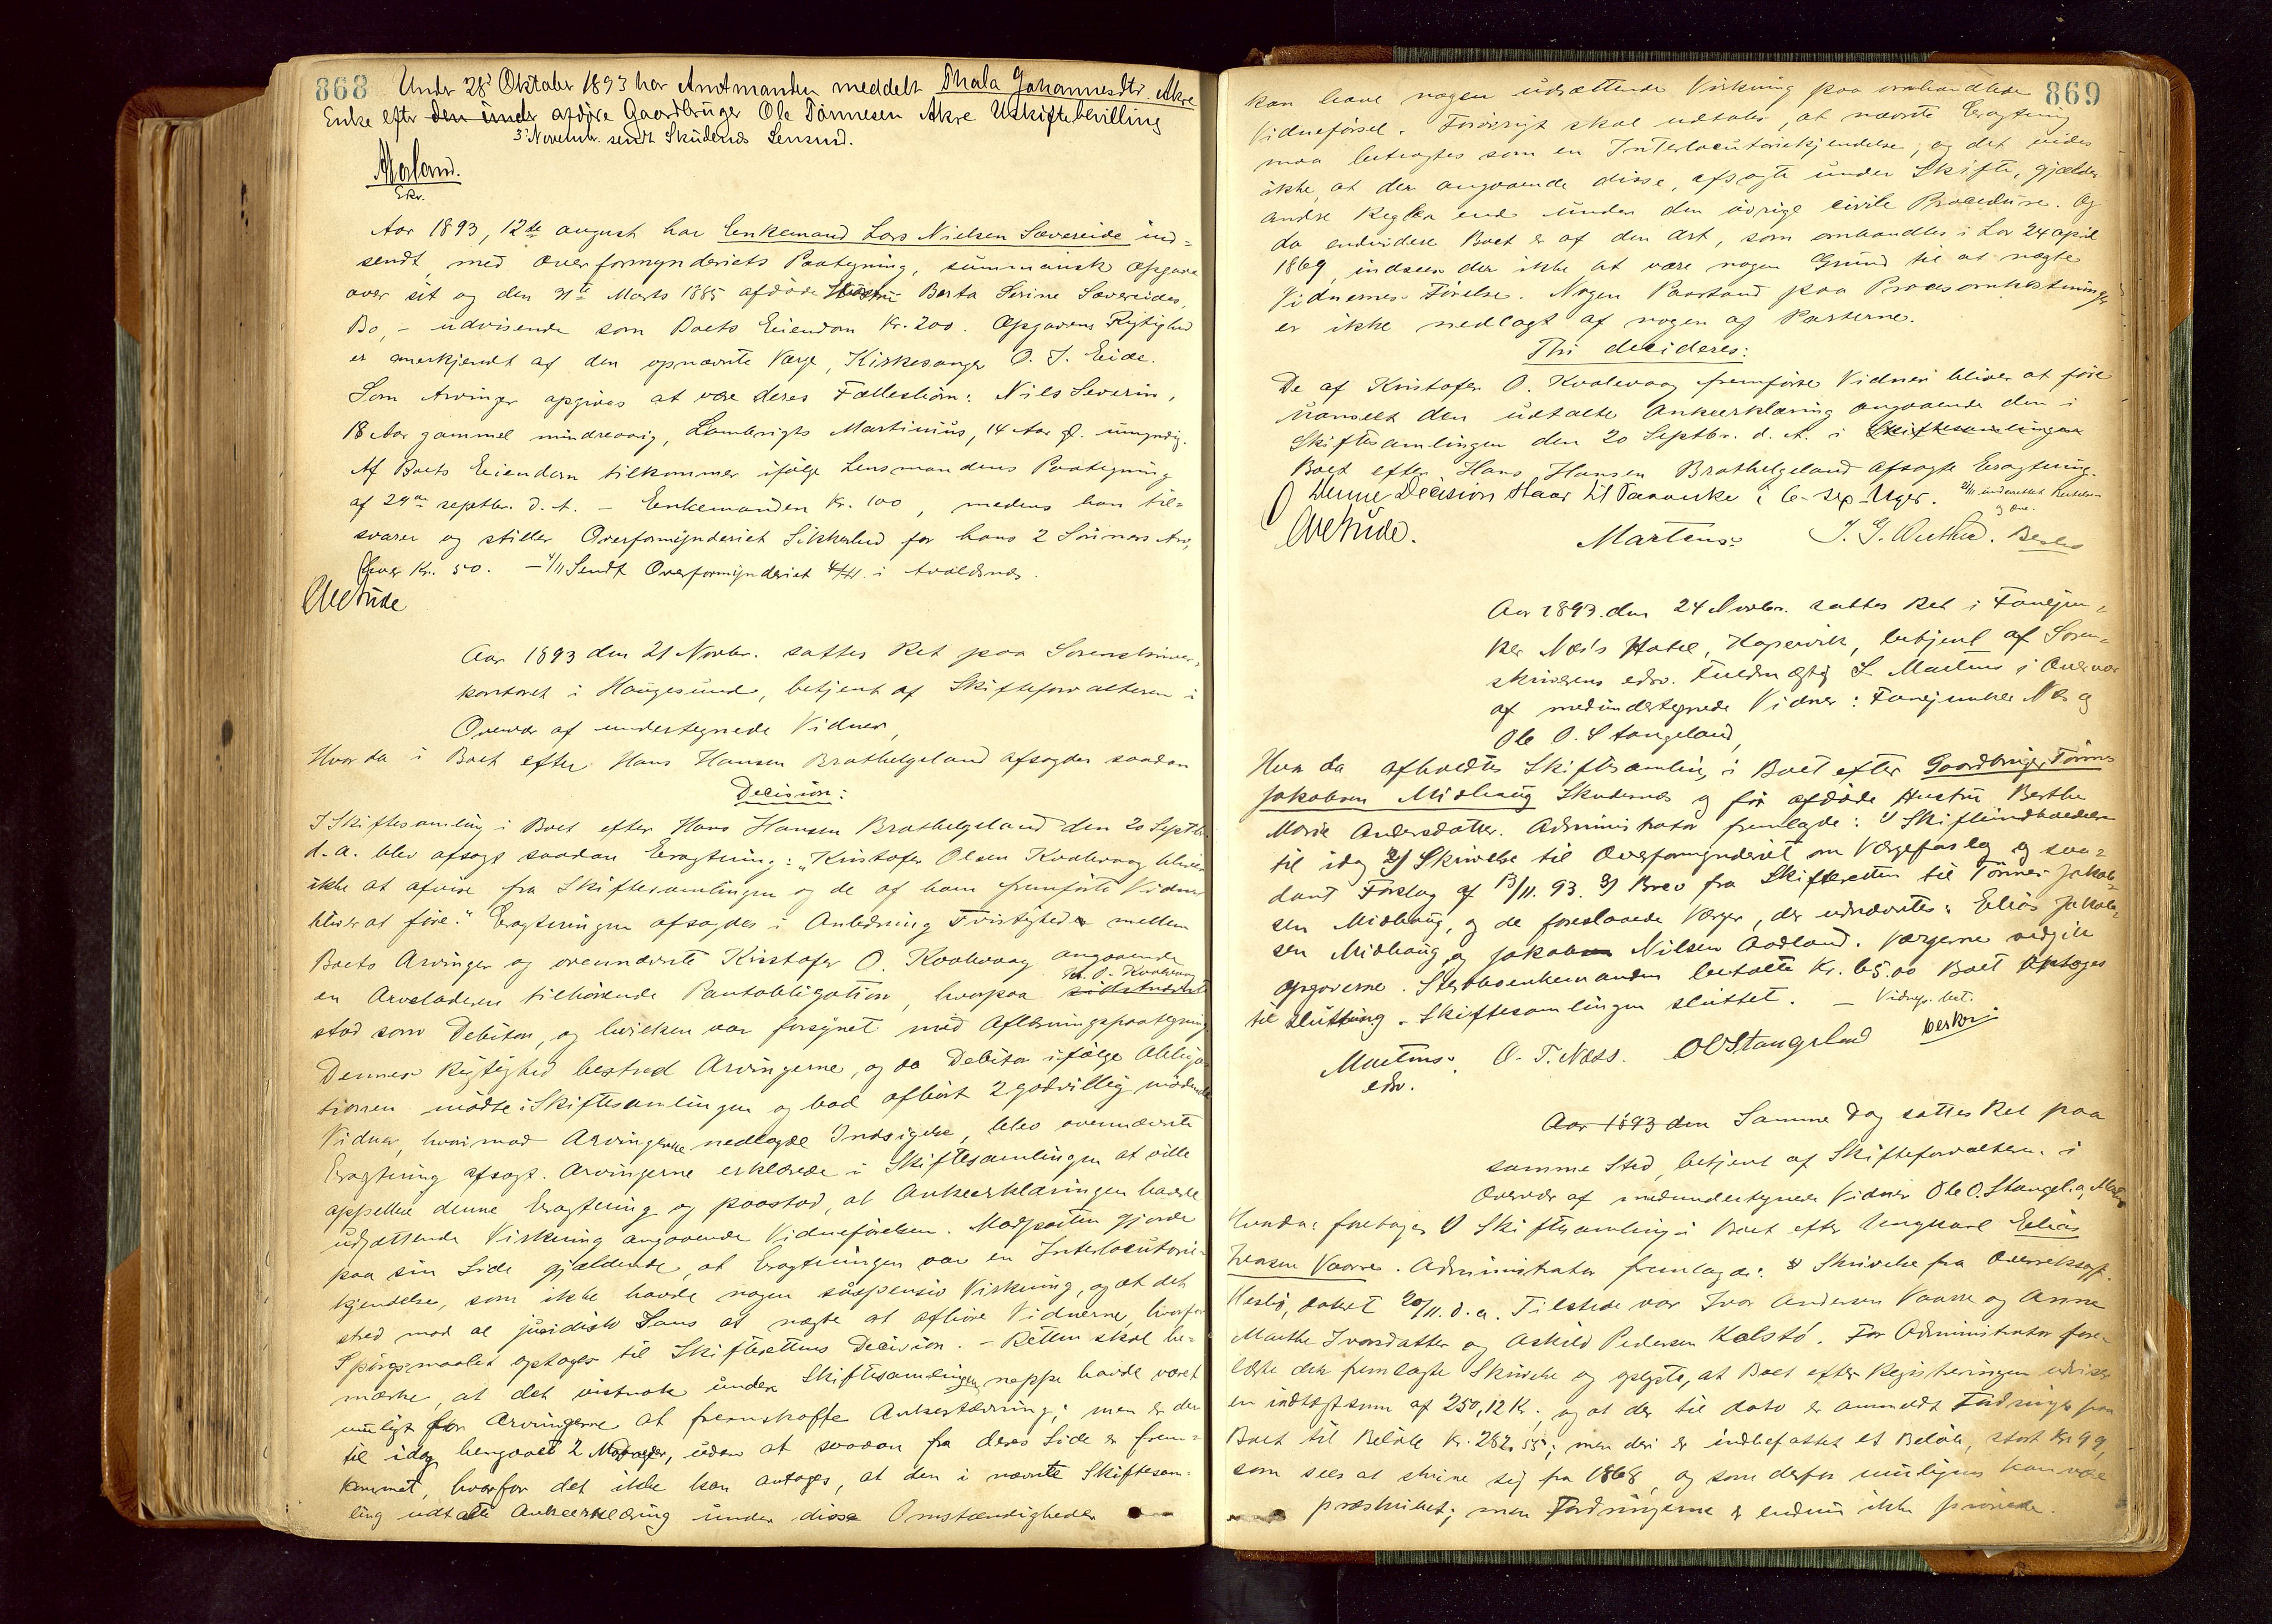 868
Under 28d Oktober 1893 har Amtmanden meddelt Thala Johannesdtr. Akre
Enke efter den under afdøde Gaardbruger Ole Tønnesen Akre Uskiftebevilling
3' Novembr. sendt Skudenes Lensmd.
Aar 1893, 12te august har Enkemand Lars Nielsen Sævereide ind=
sendt med Overformynderiets Paategning, summarisk Opgave
over sit og den 31te Marts 1885 afdøde Hustru Berta Serine Sævereides
Bo, – udvisende som Boets Eiendom Kr. 200. Opgavens Rigtighed
er anerkjendt af den opnævnte Værge, Kirkesanger O. J. Eide.
Som Arvinger opgives at være deres Fællesbørn: Nils Severin,
18 Aar gammel mindreaarig, Lambrigts Martinius, 14 Aar gl. umyndig.
Af Boets Eiendom tilkommer ifølge Lensmandens Paategning
af 29de septbr. d. A. – Enkemanden Kr. 100, medens han til=
svarer og stiller Overformynderiet Sikkerhed for hans 2 Sønners Arv,
hver Kr. 50. – 4/11 Sendt Overformynderiet 4/11. i Avaldsnes.
Aar 1893 den 21 Novbr. sattes Ret paa Sorenskriver=
kontoret i Haugesund, betjent af Skifteforvalteren i
Overvær af undertegnede Vidner,
Hvor da i Boet efter Hans Hansen Brathelgeland afsagdes saadan
Decision:
I Skiftesamling i Boet efter Hans Hansen Brathelgeland den 20 Septbr.
d. A. blev afsagt saadan Eragtning: "Kristofer Olsen Kvalevaag bliver
ikke at afvise fra Skiftesamlingen og de af ham fremførte Vidner
bliver at føre." Eragtningen afsagdes i Anledning Tvistigheder mellem
Boets Arvinger og ovennævnte Kristofer O. Kvalevaag angaaende
en Arveladeren tilhørende Pantobligation, hvorpaa sidstnævnte K. O. Kvalevaag
stod som Debitor, og hvilken var forsynet med Aflæsningspaategning
Dennes Rigtighed bestred Arvingerne, og da Debitor ifølge Obliga
tionen mødte i Skiftesamlingen og bad afhørt 2 godvillig mødende
Vidner, hvorimod Arvingerne nedlagde Indsigelse, blev ovennævnte
Eragtning afsagt. Arvingerne erklærede i Skiftesamlingen at ville
appellere denne Eragtning og paastod, at Ankeerklæringen havde
udsættende Virkning angaaende Vidneførelsen. Modparten gjorde
paa sin Side gjældende, at Eragtningen var en Interlocutorie=
kjendelse, som ikke havde nogen suspensiv Virkning, og at det
stred mod al juridisk Sans at nægte at afhøre Vidnerne, hvorfor
Spørgsmaalet optoges til Skifterettens Decision. – Retten skal be=
mærke, at det vistnok under Skiftesamlingen neppe havde været
muligt for Arvingerne at fremskaffe Ankestævning; men er der
til idag hengaaet 2 Maaneder, uden at saadan fra deres Side er frem=
kommet, hvorfor det ikke kan antages, at den i nævnte Skiftesam=
ling udtalte Ankeerklæring under disse Omstændigheder
869
kan have nogen udsættende Virkning paa omhandlede
Vidneførsel. Forøvrigt skal udtales, at nævnte Eragtning
maa betragtes som en Interlocutoriekjendelse, og det vides
ikke, at der angaaende disse, afsagte under Skifte, gjælder
andre Regler end under den øvrige civile Procedure. Og
da endvidere Boet er af den Art, som omhandles i Lov 24 april
1869, indsees der ikke at være nogen Grund til at nægte
Vidnernes Førelse. Nogen Paastand paa Procesomkostninger
er ikke nedlagt af nogen af Parterne.
Thi decideres:
De af Kristofer O. Kvalevaag fremførte Vidner bliver at føre
uanseet den udtalte Ankeerklæring angaaende den i
Skiftesamlingen den 20 Septbr. d. A. i Skiftesamlingen
Boet efter Hans Hansen Brathelgeland afsagte Eragtning.
Denne Decision staar til Paaanke i 6 – sex – Uger.
Martens
Aar 1893 den 24 Novbr. sattes Ret i Fanejun=
ker Næs's Hotel, Kopervik, betjent af Soren=
skriverens edsv. Fuldmægtig S. Martens i Overvær
af medundertegnede Vidner: Fanejunker Næs og
Ole O. Stangeland,
Hvor da afholdtes Skiftesamling i Boet efter Gaardbruger Tønnes
Jakobsen Midhaug Skudenes og før afdøde Hustru Berthe
Marie Andersdatter. Administrator fremlagde: 1) Skifteindkaldelse
til idag 2) Skrivelse til Overformynderiet om Værgeforslag og saa=
dant Forslag af 13/11. 93. 3) Brev fra Skifteretten til Tønnes Jakob=
sen Midhaug, og de foreslaaede Værger, der udnævntes: Elias Jakob=
sen Midhaug og Jakob Nilsen Aadland. Værgerne vedgik
Opgaverne. Sterboenkemanden betalte Kr. 65.00 Boet optoges
til slutning. Skiftesamlingen sluttet. – Vidnep. bet.
Martens. O. T. Næss. OOStangeland
edsv.
Aar 1893 den Samme Dag sattes Ret paa
samme Sted, betjent af Skifteforvalteren i
Overvær af medundertegnede Vidner Ole O. Stangel. og
Hvor da foretoges Skiftesamling i Boet efter Ungkarl Elias
Ivarsen Vaarre. Administrator fremlagde: Skrivelse fra Overretssagf.
dateret 20/11. d. a. Tilstede var Ivar Andersen Vaarre og Anne
Marthe Ivarsdatter og Askild Pedersen Kalstø. For Administrator fore=
læste den fremlagte Skrivelse og oplyste, at Boet efter Registreringen udviser
en indtægtsum af 250,12 Kr., og at der til dato er anmeldt Fordringer paa
Boet til Beløb Kr. 282.55; men deri er indbefattet et Beløb, stort Kr. 99,
som sees at skrive sig fra 1868, og som derfor muligens kan være
præskribet; men Fordringerne er endnu ikke prøvede.